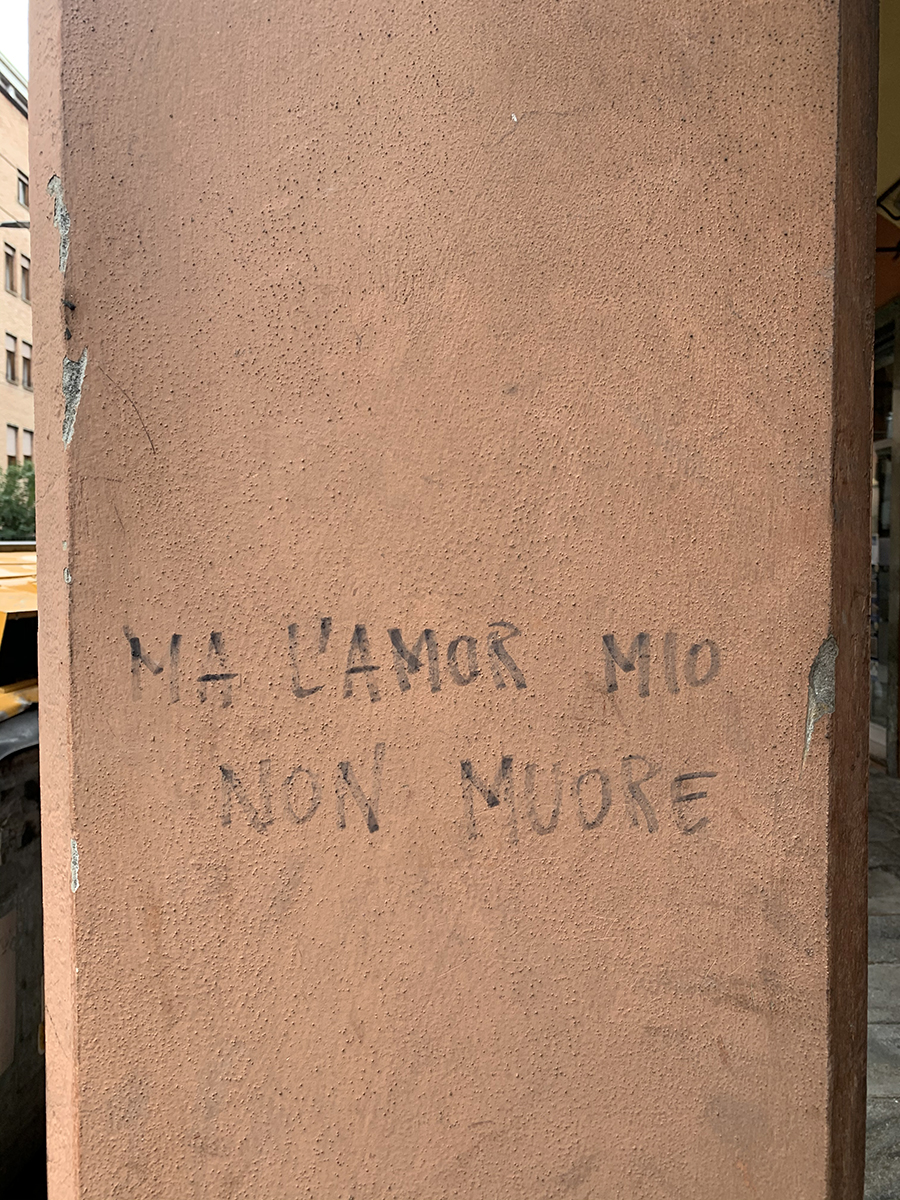 MA L'AMOR MIO
NON MUORE